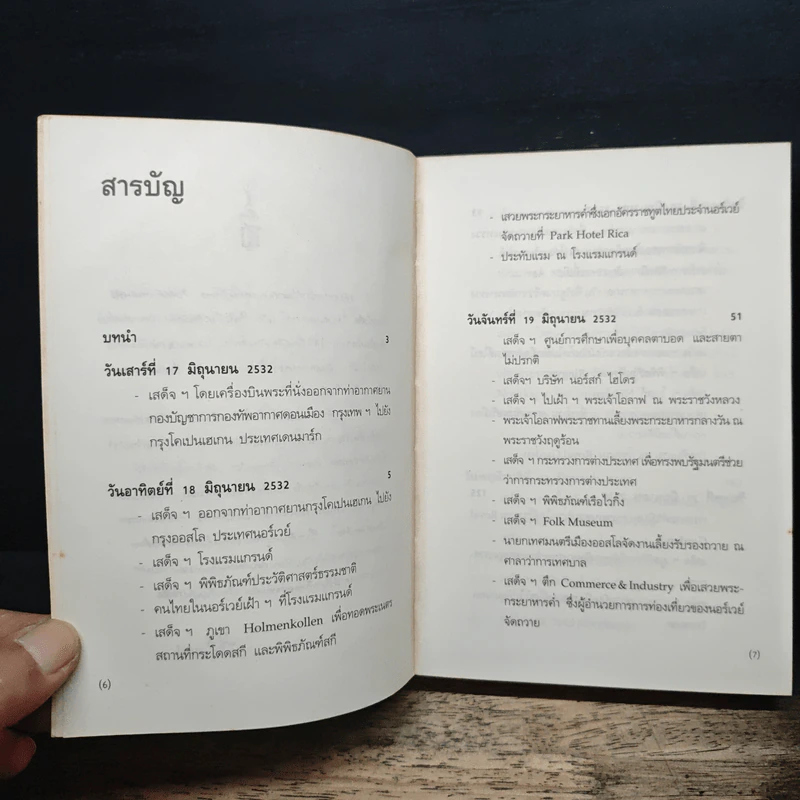 สารบัญ
บทนำ 3
วันเสาร์ที่ 17 มิถุนายน 2532
- เสด็จ ฯ โดยเครื่องบินพระที่นั่งออกจากท่าอากาศยาน
กองบัญชาการกองทัพอากาศดอนเมือง กรุงเทพ ฯ ไปยัง
กรุงโคเปนเฮเกน ประเทศเดนมาร์ก
วันอาทิตย์ที่ 18 มิถุนายน 2532 5
- เสด็จ ฯ ออกจากท่าอากาศยานกรุงโคเปนเฮเกน ไปยัง
กรุงออสโล ประเทศนอร์เวย์
- เสด็จ ฯ โรงแรมแกรนด์
- เสด็จ ฯ พิพิธภัณฑ์ประวัติศาสตร์ธรรมชาติ
- คนไทยในนอร์เวย์เฝ้า ฯ ที่โรงแรมแกรนด์
- เสด็จ ฯ ภูเขา Holmenkollen เพื่อทอดพระเนตร
สถานที่กระโดดสกี และพิพิธภัณฑ์สกี
(6)
- เสวยพระกระยาหารค่ำซึ่งเอกอัครราชทูตไทยประจำนอร์เวย์
จัดถวายที่ Park Hotel Rica
- ประทับแรม ณ โรงแรมแกรนด์
วันจันทร์ที่ 19 มิถุนายน 2532 51
เสด็จ ฯ ศูนย์การศึกษาเพื่อบุคคลตาบอด และสายตา
ไม่ปรกติ
- เสด็จฯ บริษัท นอร์สก์ ไฮโดร
- เสด็จ ฯ ไปเฝ้า ฯ พระเจ้าโอลาฟ ณ พระราชวังหลวง
- พระเจ้าโอลาฟพระราชทานเลี้ยงพระกระยาหารกลางวัน ณ
พระราชวังฤดูร้อน
- เสด็จ ฯ กระทรวงการต่างประเทศ เพื่อทรงพบรัฐมนตรีช่วย
ว่าการกระทรวงการต่างประเทศ
- เสด็จ ฯ พิพิธภัณฑ์เรือไวกิ้ง
- เสด็จ ฯ Folk Museum
- นายกเทศมนตรีเมืองออสโลจัดงานเลี้ยงรับรองถวาย ณ
ศาลาว่าการเทศบาล
- เสด็จ ฯ ตึก Commerce & Industry เพื่อเสวยพระ-
กระยาหารค่ำ ซึ่งผู้อำนวยการการท่องเที่ยวของนอร์เวย์
จัดถวาย
(7)